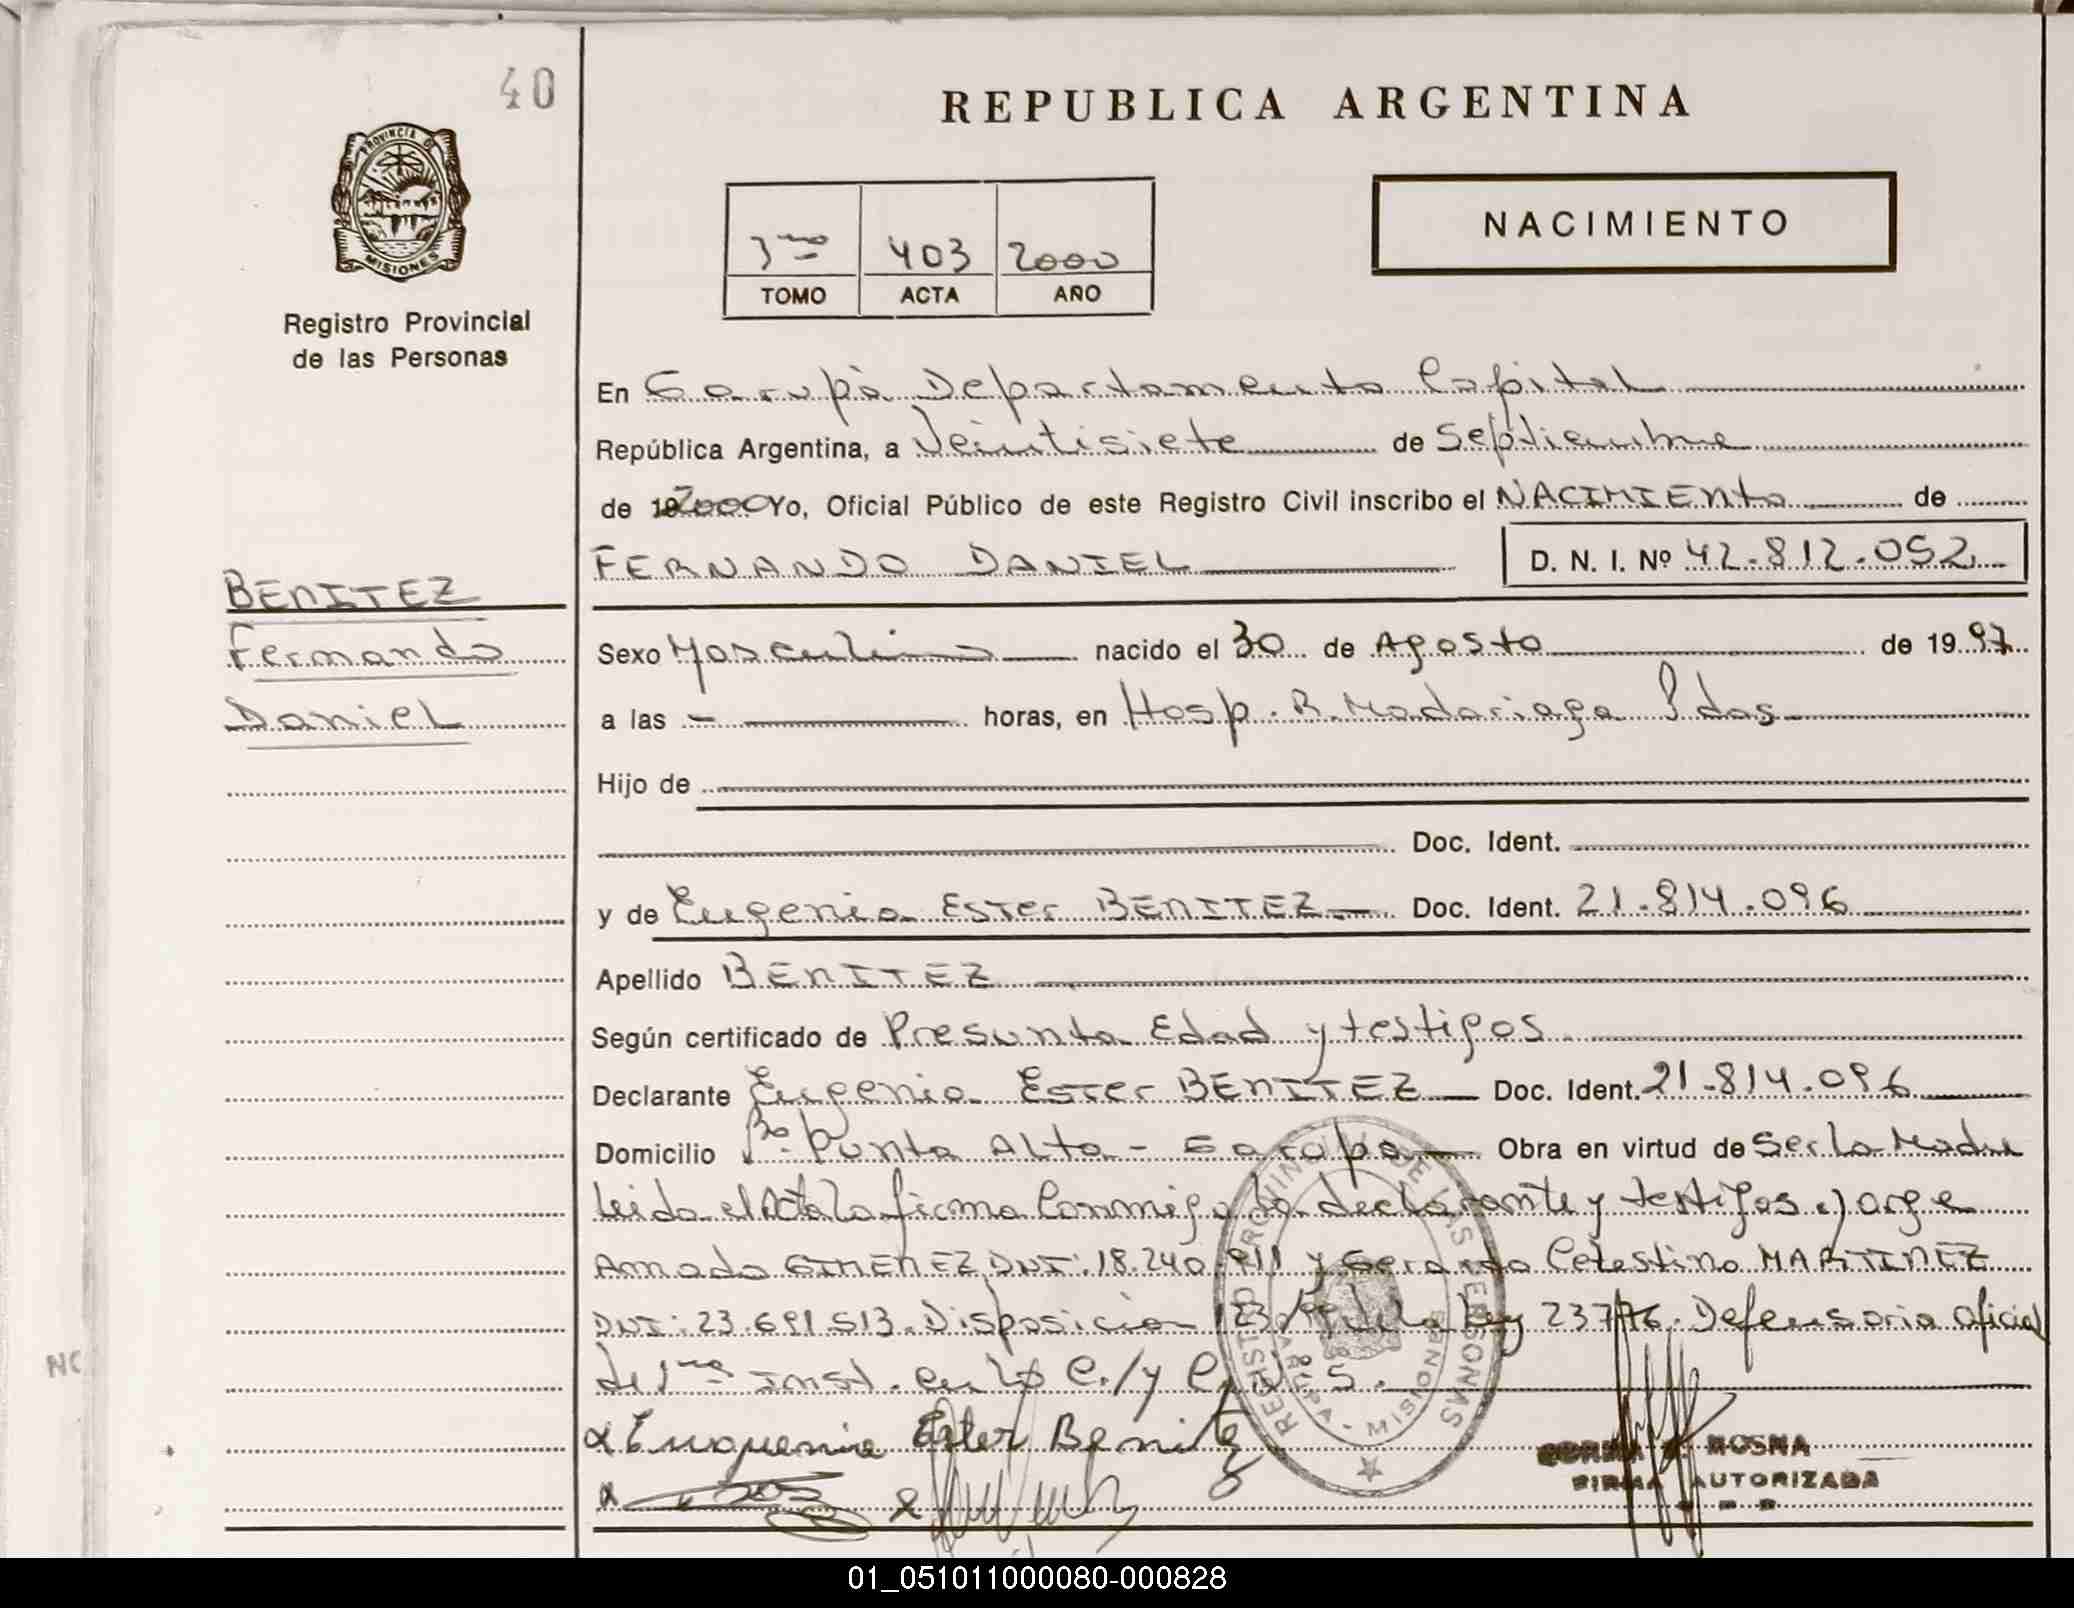 40
REPUBLICA ARGENTINA
PROVINCIA DE
MISIONES
NACIMIENTO
403 2000
TOMO ACTA AÑO
Registro Provincial
de las Personas
En Garupá Departamento Capital
República Argentina, a Veintisiete de Septiembre
de 192000 Yo, Oficial Público de este Registro Civil inscribo el NACIMIENto de
FERNANDO DANIEL D. N. I. Nº 42.812.052
BENITEZ
Fernando
Daniel
Sexo Masculino nacido el 30 de Agosto de 1997
a las - horas, en Hosp. R. Madariaga Pdas
Hijo de
Doc. Ident.
y de Eugenia Ester BENITEZ Doc. Ident. 21.814.096
Apellido BENITEZ
Según certificado de Presunta Edad y testigos
Declarante Eugenia Ester BENITEZ Doc. Ident. 21.814.096
Domicilio Bo. Punta Alta - Garupa Obra en virtud de Ser la Madre
leida el Acta la firma Conmigo la declarante y testigos Jorge
Amado GIMENEZ DNI: 18.240.911 y Gerardo Celestino MARTINEZ
DNI: 23.691.513. Disposicion 123/99 de la Ley 23776. Defensoria Oficial
de 1ra Inst. en lo C. y C.
x Eugenia Ester Benitez
x x
REGISTRO PROVINCIAL DE LAS PERSONAS
GARUPA - MISIONES
NORMA MOSNA
FIRMA AUTORIZADA
NC
01_051011000080-000828